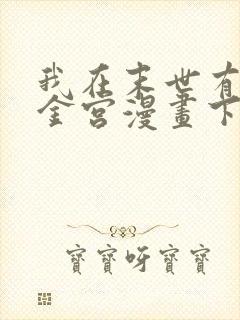 我在末世有
全宫漫畫下
寶寶呀寶寶